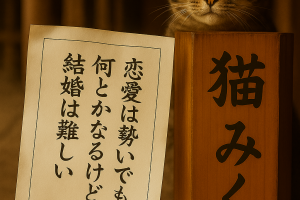 恋愛は勢いでも
何とかなるけど
結婚は難しい
猫みく